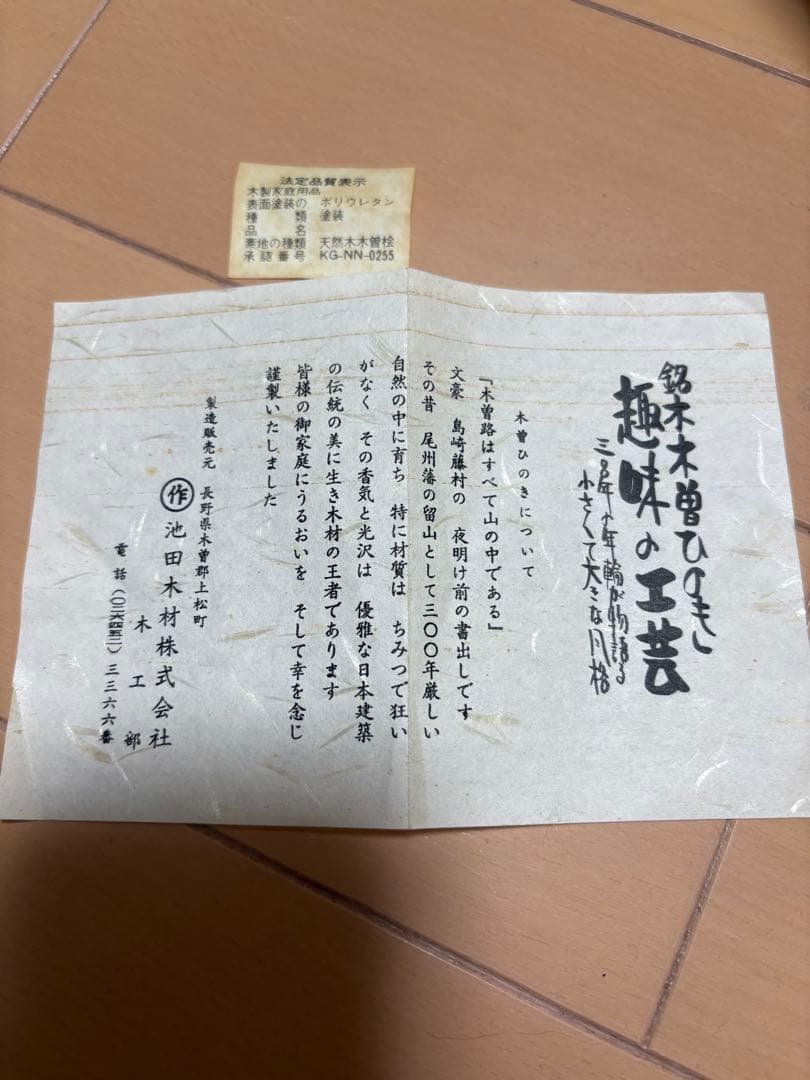 法定品質表示
木製家庭用品
表面塗装の ポリウレタン
種類 塗装
品名
素地の種類 天然木木曽桧
承認番号 KG-NN-0255
銘木木曽ひのき
趣味の工芸
三百年の年輪が物語る
小さくて大きな風格
木曽ひのきについて
「木曽路はすべて山の中である」
文豪 島崎藤村の 夜明け前の書出しです
その昔 尾州藩の留山として三〇〇年厳しい
自然の中に育ち 特に材質は ちみつで狂い
がなく その香気と光沢は 優雅な日本建築
の伝統の美に生き木材の王者であります
皆様の御家庭にうるおいを そして幸を念じ
謹製いたしました
製造販売元 長野県木曽郡上松町
作 池田木材株式会社
木工部
電話(〇二六四五二)三三六六番